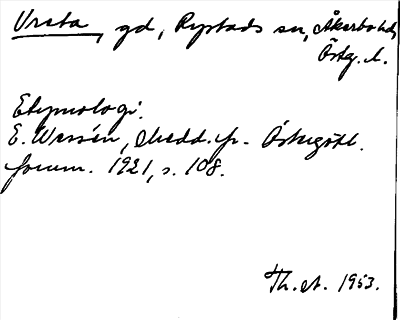 Vreta, gd, Rystads sn, Åkerbo hd,
Östg. l.
Etymologi.
E. Wessén, Medd. fr. Östergötl.
fornm. 1921, s. 108.
Th. at. 1953.